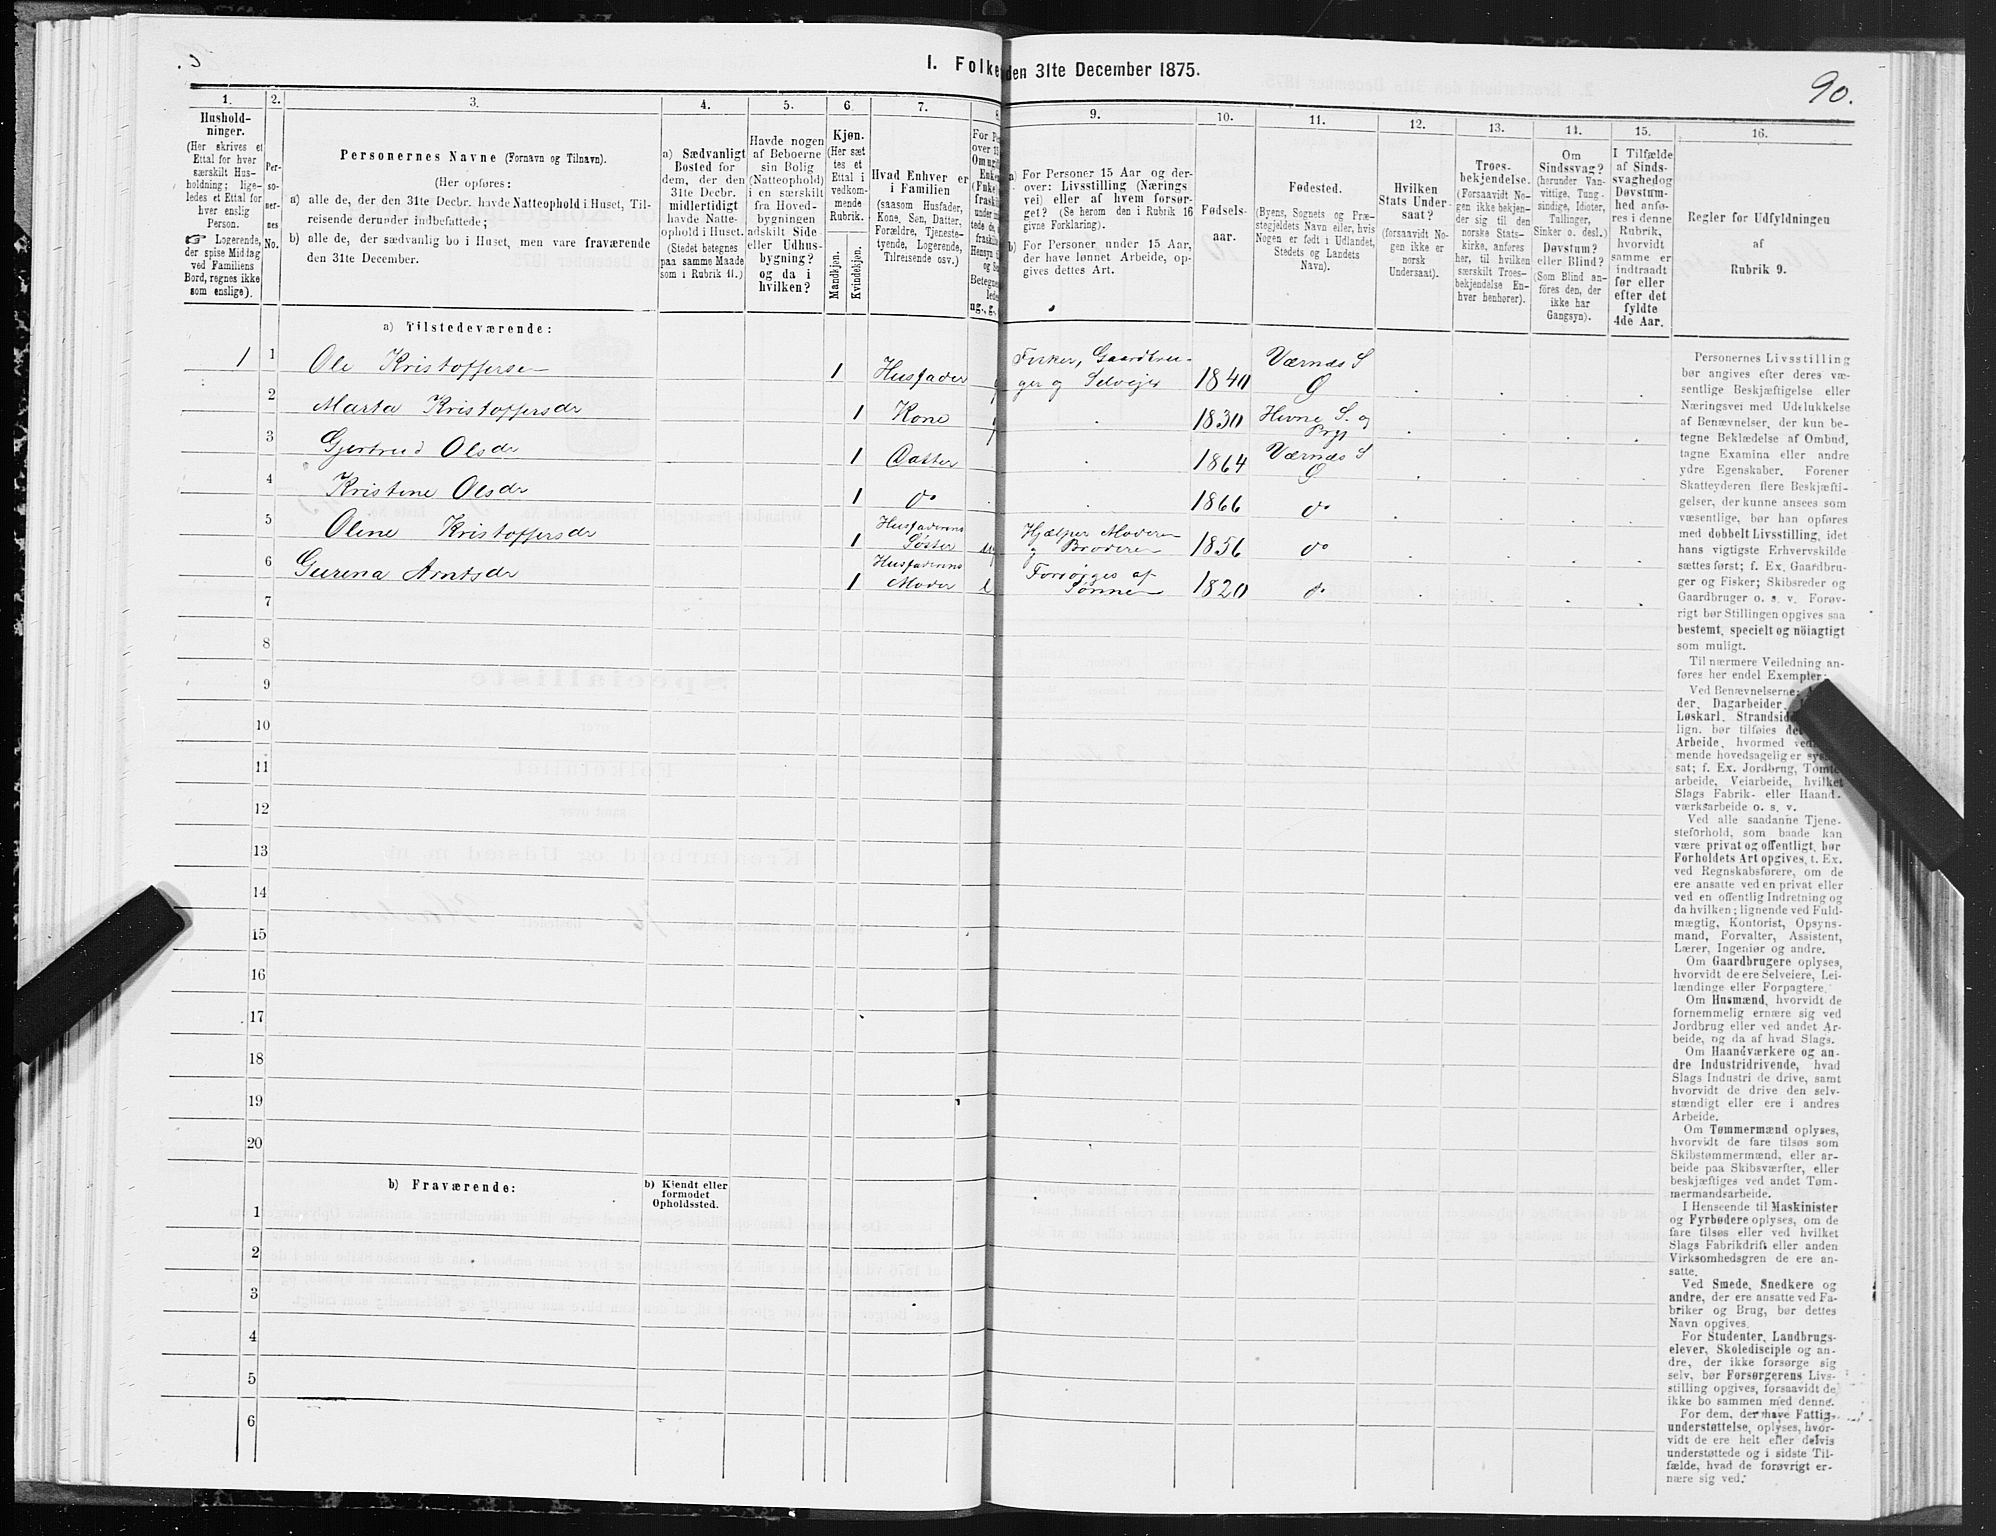 I. Folke den 31te December 1875.
90.
1. 2. 3. 4. 5. 6. 7. 8. 9. 10. 11. 12. 13. 14. 15. 16.
Hushold-
ninger.
(Her skrives et
Ettal for hver
særskilt Hus-
holdning; lige-
ledes et Ettal for
hver enslig
Person.
☞ Logerende,
der spise Middag
ved Familiens
Bord, regnes ikke
som enslige).
Per-
so-
ner-
nes
No.
Personernes Navne (Fornavn og Tilnavn).
(Her opføres:
a) alle de, der den 31te Decbr. havde Natteophold i Huset, Til-
reisende derunder indbefattede;
b) alle de, der sædvanlig bo i Huset, men vare fraværende
den 31te December.
a) Sædvanligt
Bosted for
dem, der den
31te Decbr.
midlertidigt
havde Natte-
ophold i Huset.
(Stedet betegnes
paa samme Maade
som i Rubrik 11.)
Havde nogen
af Beboerne
sin Bolig
(Natteophold)
i en særskilt
fra Hoved-
bygningen
adskilt Side-
eller Udhus-
bygning?
og da i
hvilken?
Kjøn.
(Her sæt-
tes et
Ettal i
vedkom-
mende
Rubrik.
Mandkjøn.
Kvindekjøn.
Hvad Enhver er
i Familien
(saasom Husfader,
Kone, Søn, Datter,
Forældre, Tjeneste-
tyende, Logerende,
Tilreisende osv.)
a) For Personer 15 Aar og der-
over: Livsstilling (Nærings-
vei) eller af hvem forsør-
get? (Se herom den i Rubrik 16
givne Forklaring).
b) For Personer under 15 Aar,
der have lønnet Arbeide, op-
gives dettes Art.
Fødsels-
aar.
Fødested.
(Byens, Sognets og Præ-
stegjeldets Navn eller, hvis
Nogen er født i Udlandet,
Stedets og Landets
Navn).
Hvilken
Stats Under-
saat?
(forsaavidt No-
gen ikke er
norsk
Undersaat).
Troes-
bekjendelse.
(Forsaavidt No-
gen ikke bekjen-
der sig til den
norske Stats-
kirke, anføres
her, til hvilken
særskilt Troes-
bekjendelse En-
hver henhører).
Om
Sindssvag?
(herunder Van-
vittige, Tung-
sindige, Idioter,
Tullinger,
Sinker o. desl.)
Døvstum?
eller Blind?
(Som Blind an-
føres den, der
ikke har
Gangsyn).
I Tilfælde
af Sinds-
svaghed og
Døvstum-
hed anfø-
res i denne
Rubrik,
hvorvidt
samme er
indtraadt
før eller
efter det
fyldte
4de Aar.
Regler for Udfyldningen
af
Rubrik 9.
a) Tilstedeværende:
1 1 Ole Kristoffersen 1 Husfader Fisker, Gaardbru-
ger og Selveier 1840 Værnæs S
2 Marta Kristoffersdr 1 Kone 1830 Hevne S. og
Prgj
3 Gjertrud Olsdr 1 Datter 1864 Værnæs S
4 Kristene Olsdr 1 do 1866 do
5 Oline Kristoffersdr 1 Husfaderens
Søster ug Hjælper Moderen
og Broderen 1856 do
6 Gurina Arntsdr 1 Husfaderens
Moder e Forsørges af
Sønnen 1820 do
7
8
9
10
11
12
13
14
15
16
17
18
19
20
b) Fraværende:
b) Kjendt eller
formodet
Opholdssted.
1
2
3
4
5
6
Personernes Livsstilling
bør angives efter deres væ-
sentlige Beskjæftigelse eller
Næringsvei med Udelukkelse
af Benævnelser, der kun be-
tegne Beklædelse af Ombud,
tagne Examina eller andre
ydre Egenskaber. Forener
Skatteyderen flere Beskjæfti-
gelser, der kunne ansees som
væsentlige, bør han opføres
med dobbelt Livsstilling, idet
hans vigtigste Erhvervskilde
sættes først; f. Ex. Gaardbru-
ger og Fisker; Skibsreder og
Gaardbruger o. s. v. Forøv-
rigt bør Stillingen opgives saa
bestemt, specielt og nöiagtigt
som muligt.
Til nærmere Veiledning an-
føres her endel Exempler:
Ved Benævnelserne:
der, Dagarbeider,
Løskarl, Strandsid
lign. bør tilføies de
Arbeide, hvormed ved
mende hovedsagelig er sys
sat; f. Ex. Jordbrug, Tomte-
arbeide, Veiarbeide, hvilket
Slags Fabrik- eller Haand-
værksarbeide o. s. v.
Ved alle saadanne Tjene-
steforhold, som baade kan
være privat og offentligt, bør
Forholdets Art opgives, t. Ex.
ved Regnskabsførere, om de
ere ansatte ved en privat eller
ved en offentlig Indretning og
da hvilken; lignende ved Fuld-
mægtig, Kontorist, Opsyns-
mand, Forvalter, Assistent,
Lærer, Ingeniør og andre.
Om Gaardbrugere oplyses,
hvorvidt de ere Selveiere, Lei-
lændinge eller Forpagtere.
Om Husmænd, hvorvidt de
fornemmelig ernære sig ved
Jordbrug eller ved andet Ar-
beide, og da af hvad Slags.
Om Haandværkere og an-
dre Industridrivende, hvad
Slags Industri de drive, samt
hvorvidt de drive den selv-
stændigt eller ere i andres
Arbeide.
Om Tømmermænd oplyses,
hvorvidt de fare tilsøs som
Skibstømmermænd, eller ar-
beide paa Skibsværfter, eller
beskjæftiges ved andet Tøm-
mermandsarbeide.
I Henseende til Maskinister
og Fyrbødere oplyses, om de
fare tilsøs eller ved hvilket
Slags Fabrikdrift eller anden
Virksomhedsgren de ere an-
satte.
Ved Smede, Snedkere og
andre, der ere ansatte ved Fa-
briker og Brug, bør dettes
Navn opgives.
For Studenter, Landbrugs-
elever, Skoledisciple og an-
dre, der ikke forsørge sig
selv, bør Forsørgerens Livs-
stilling opgives, forsaavidt de
ikke bo sammen med denne.
For dem, der have Fattig-
understøttelse, oplyses, hvor-
vidt de ere helt eller delvis
understøttede og i sidste Til-
fælde, hvad de forøvrigt er-
nære sig ved.